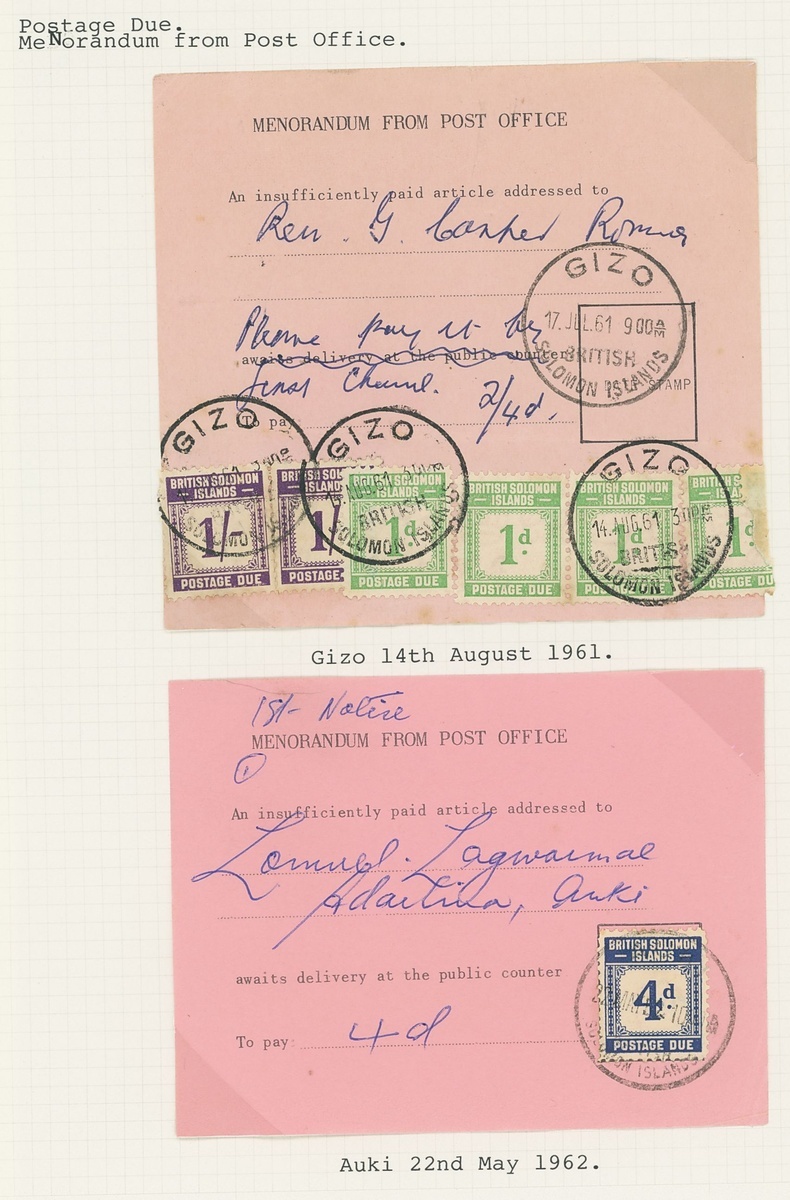 Postage Due.
MeNorandum from Post Office.
MENORANDUM FROM POST OFFICE
An insufficiently paid article addressed to
Rev. G.
GIZO
17. JUL.61 9 00AM
BRITISH
SOLOMON ISLANDS
Please pay it by
awaits delivery at the public counter
first
STAMP
To pay 2/4d.
GIZO
SOLOMON
GIZO
14.AUG.61 3 00PM
BRITISH
SOLOMON ISLANDS
GIZO
14.AUG.61 3 00PM
BRITISH
SOLOMON ISLANDS
BRITISH SOLOMON ISLANDS 1/ POSTAGE DUE
BRITISH SOLOMON ISLANDS 1/ POSTAGE
BRITISH SOLOMON ISLANDS 1d POSTAGE DUE
BRITISH SOLOMON ISLANDS 1d POSTAGE DUE
BRITISH SOLOMON ISLANDS 1d POSTAGE DUE
BRITISH SOLOMON ISLANDS 1d POSTAGE DUE
Gizo 14th August 1961.
1st Notice
MENORANDUM FROM POST OFFICE
1
An insufficiently paid article addressed to
Auki
awaits delivery at the public counter
To pay: 4d
BRITISH SOLOMON
ISLANDS
4d
POSTAGE DUE
SOLOMON ISLANDS
Auki 22nd May 1962.